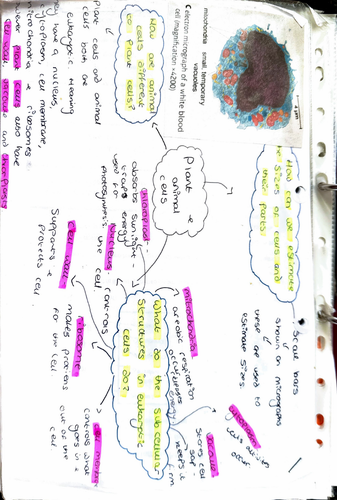 mitochondria small, temporary
vacuoles
4 µm
C electron micrograph of a white blood
cell (magnification ×4200)
How are animal
cells different
to plant cells?
Plant cells and animal
cells both
eukaryotic. Meaning
nucleus,
membrane,
ribosomes.
plant cells also have
cell wall, vacuole and chloroplasts
Plant &
animal
cells
How can we estimate
sizes of cells and
their parts?
Scale bars
shown on micrographs
these are used to
estimate sizes.
What do the sub-cellular
structures in eukaryotic
cells do?
absorbs sunlight -
traps energy
used for
photosynthesis
nucleus
controls
the cell
cell wall
Supports &
protects cell
ribosome
makes proteins
for the cell
controls what
goes in &
out of the
cell
mitochondria
aerobic respiration
occurs
vacuole
stores cell
sap
keeps it
firm
cytoplasm
occur